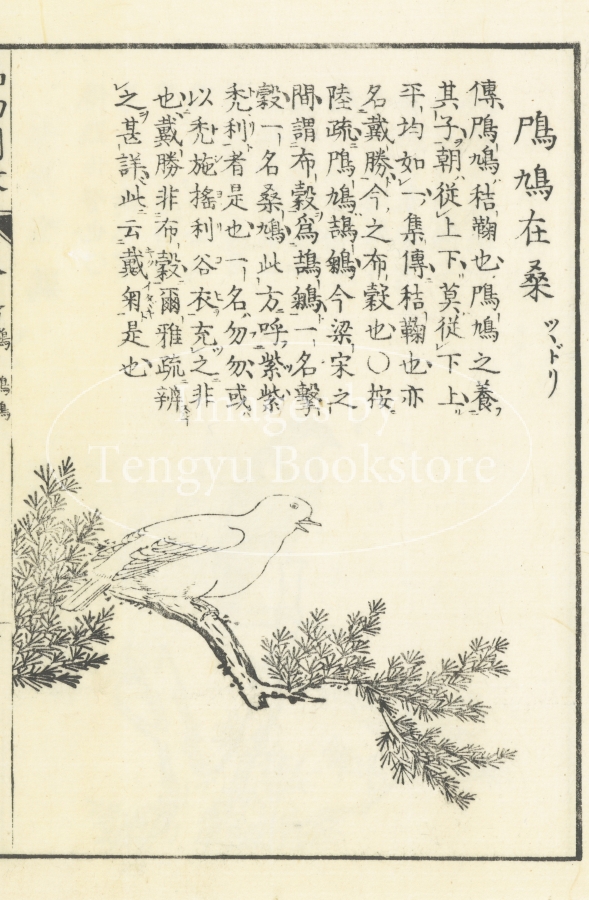 鳲鳩在桑 ツヽドリ
傳鳲鳩秸鞠也鳲鳩之養
其子朝從上下莫從下上
平均如一集傳秸鞠也亦
名戴勝今之布穀也○按
陸疏鳲鳩鴶鵴今梁宋之
間謂布穀爲鴶鵴一名擊
穀一名桑鳩此方呼紫紫
禿利者是也一名勿勿或
以禿施搖利谷衣充之非
也戴勝非布穀爾雅疏辨
之甚詳此云戴匊是也
Images by
Tengyu Bookstore